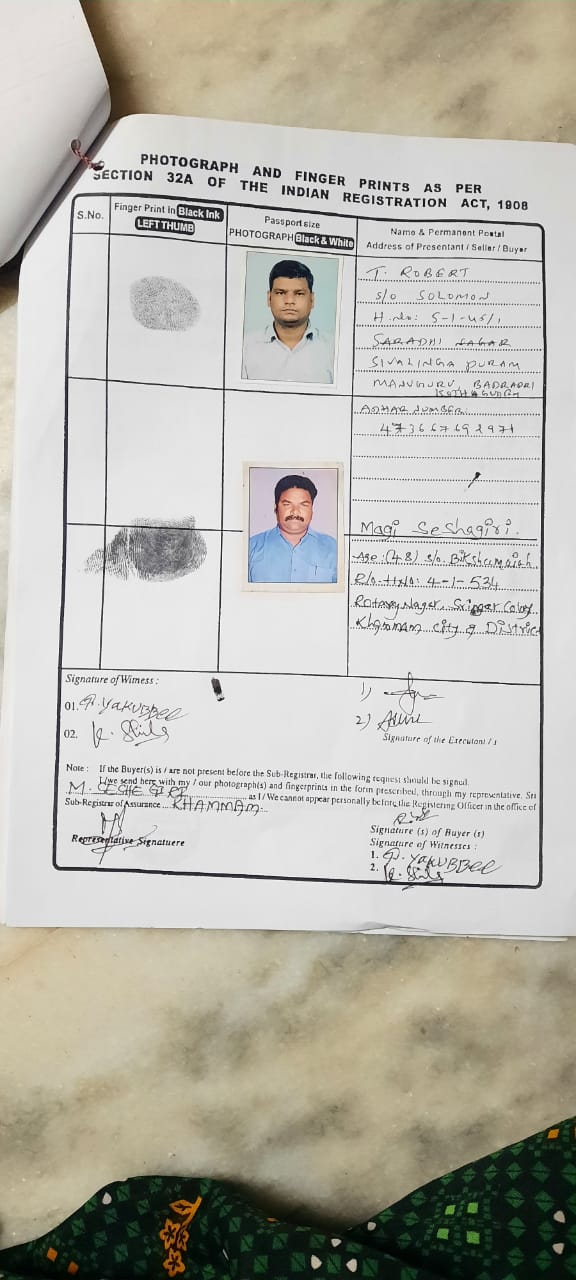 PHOTOGRAPH AND FINGER PRINTS AS PER
SECTION 32A OF THE INDIAN REGISTRATION ACT, 1908
S.No.
Finger Print in Black Ink
LEFT THUMB
Passport size
PHOTOGRAPH Black & White
Name & Permanent Postal
Address of Presentant / Seller / Buyer
T. ROBERT
S/o SOLOMON
H.No: 5-1-45/1
SARADHI NAGAR
SIVALINGA PURAM
MANUGURU, BADRADRI
KOTHAGUDEM
ADHAR NUMBER:
Magi Seshagiri.
Age:(48) S/o. Bikshamaiah
R/o. H.No: 4-1-534
Rotary Nagar, Srinagar Colony
Khammam City & District
Signature of Witness :
01. P. YAKUBBEE
02.
1)
2)
Signature of the Executant / s
Note : If the Buyer(s) is / are not present before the Sub-Registrar, the following request should be signed.
I/we send here with my / our photograph(s) and fingerprints in the form prescribed, through my representative. Sri
M. SESHE GIRI as I / We cannot appear personally before the Registering Officer in the office of
Sub-Registrar of Assurance KHAMMAM
Signature (s) of Buyer (s)
Signature of Witnesses :
Representative Signatuere
1. P. YAKUBBEE
2.